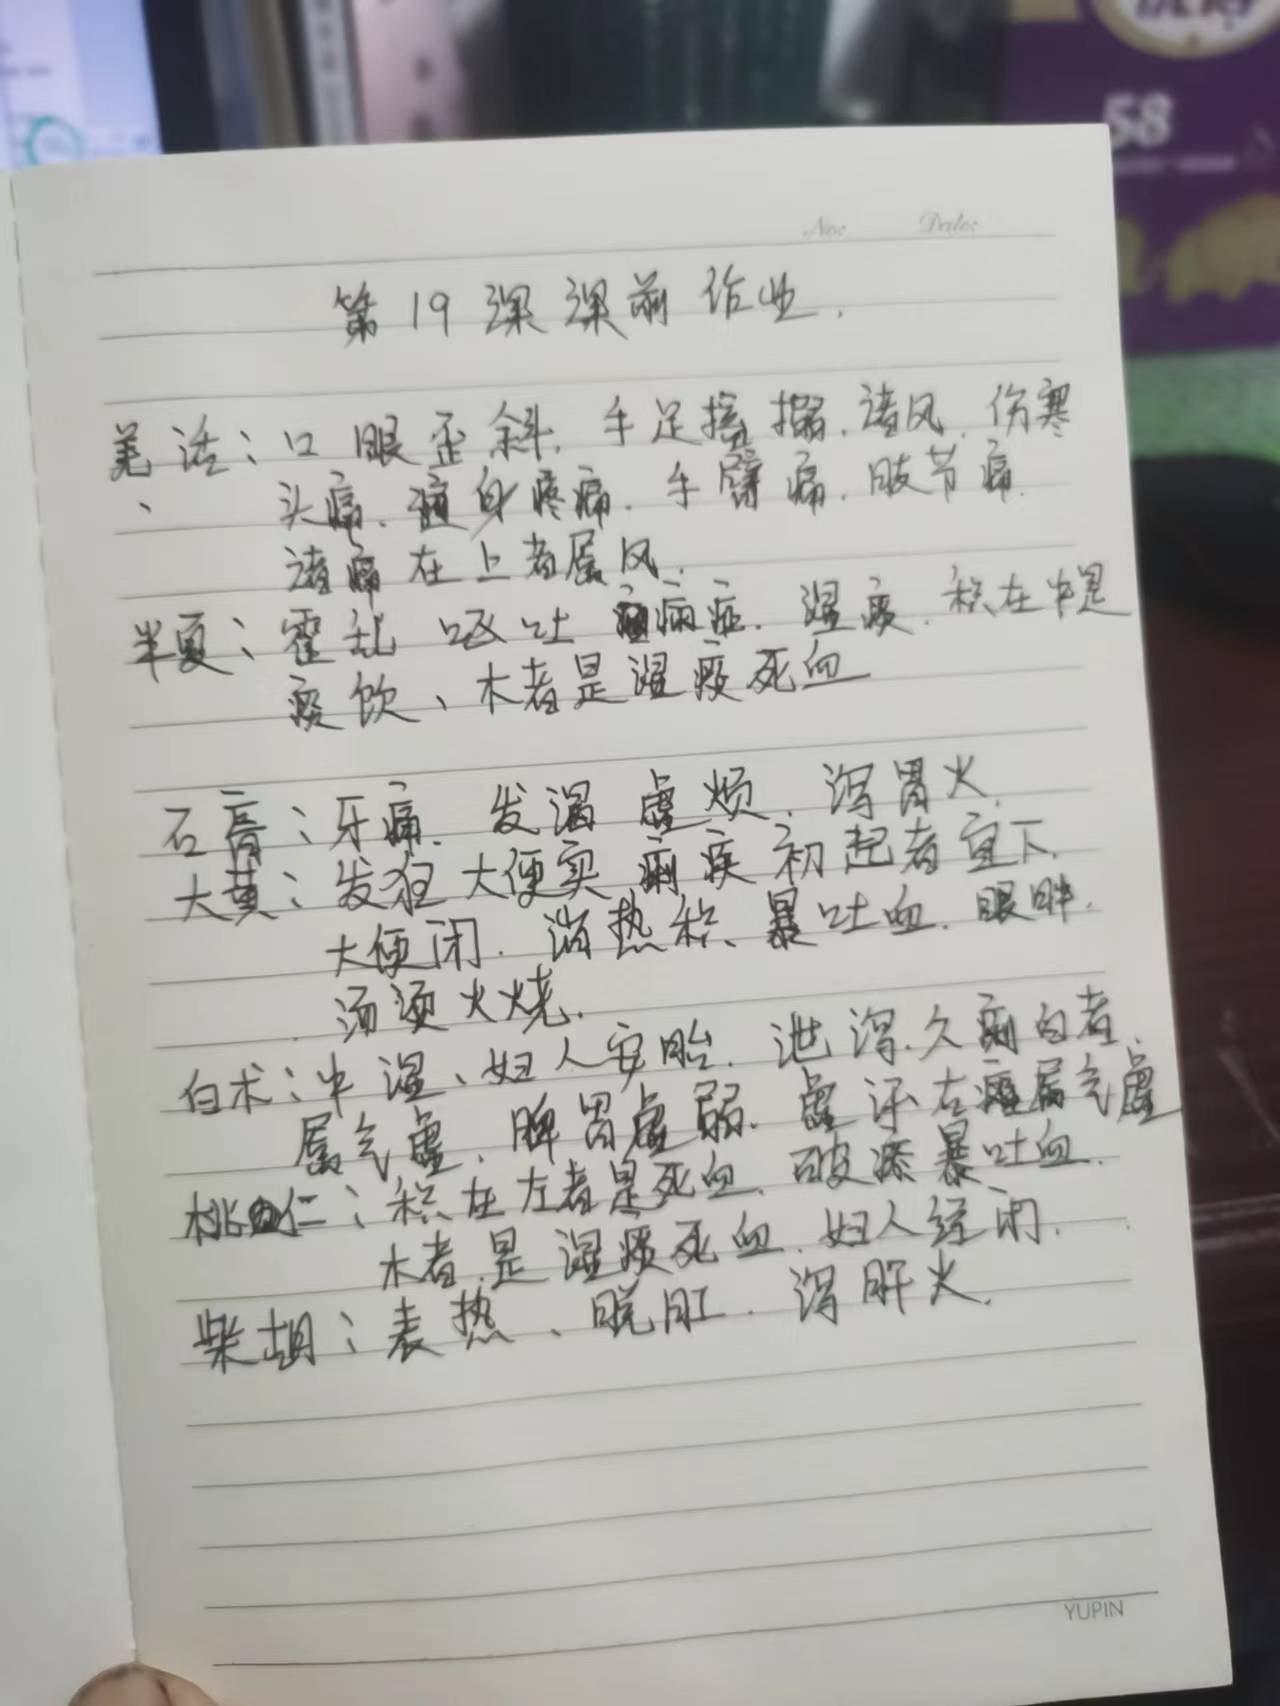 58
No: Date:
第19课课前作业.
羌活: 口眼歪斜. 手足搐搦. 诸风. 伤寒
头痛. 遍身疼痛. 手臂痛. 肢节痛.
诸痛在上者属风.
半夏: 霍乱 呕吐 痫症. 湿痰. 积在中是
痰饮、木者是湿痰死血
石膏: 牙痛. 发渴 虚烦. 泻胃火.
大黄: 发狂 大便实 痢疾初起者宜下.
大便闭. 消热积、暴吐血. 眼肿.
汤烫火烧.
白术: 中湿、妇人安胎. 泄泻. 久痢白者.
属气虚、脾胃虚弱. 虚汗 右瘫属气虚
桃仁: 积在左者是死血. 破瘀 暴吐血.
木者是湿痰死血. 妇人经闭.
柴胡: 表热、脱肛. 泻肝火.
YUPIN